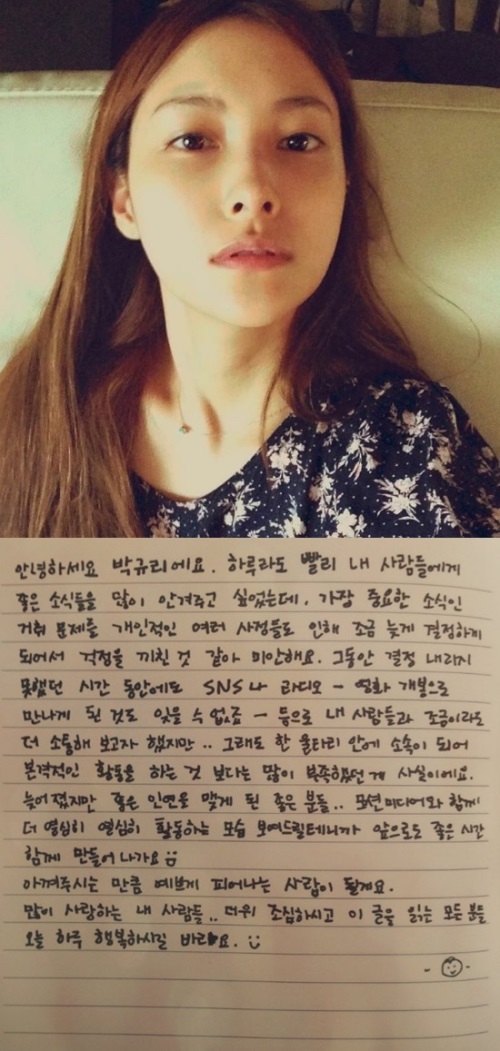 안녕하세요 박규리에요. 하루라도 빨리 내 사람들에게
좋은 소식들을 많이 안겨주고 싶었는데, 가장 중요한 소식인
거취 문제를 개인적인 여러 사정들로 인해 조금 늦게 결정하게
되어서 걱정을 끼친 것 같아 미안해요. 그동안 결정 내리지
못했던 시간 동안에도 SNS나 라디오 - 영화 개봉으로
만나게 된 것도 잊을 수 없죠 - 등으로 내 사람들과 조금이라도
더 소통해 보고자 했지만.. 그래도 한 울타리 안에 소속이 되어
본격적인 활동을 하는 것 보다는 많이 부족했던 게 사실이에요.
늦어졌지만 좋은 인연을 맺게 된 좋은 분들.. 모션미디어와 함께
더 열심히 열심히 활동하는 모습 보여드릴테니까 앞으로도 좋은 시간
함께 만들어 나가요
아껴주시는 만큼 예쁘게 피어나는 사람이 될게요.
많이 사랑하는 내 사람들.. 더위 조심하시고 이 글을 읽는 모든 분들
오늘 하루 행복하시길 바라요. :)